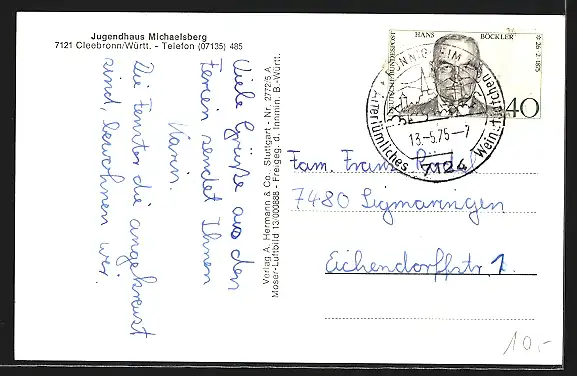 Jugendhaus Michaelsberg
7121 Cleebronn/Württ. - Telefon (07135) 485
Viele Grüße aus den
Ferien sendet Ihnen
Karin.
Die Fenster die angekreuzt
sind, bewohnen wir.
Verlag A. Hermann & Co., Stuttgart - Nr. 2772/5 A
Moser-Luftbild 13/000888 - Freigeg. d. Innmin. B.-Württ.
DEUTSCHE BUNDESPOST
HANS BÖCKLER
* 26·2·1875
40
BÖNNIGHEIM
13.-5.75-7
Altertümliches Weinstädtchen
7124
Fam. Franz
7480 Sigmaringen
Eichendorffstr. 1.
10,-